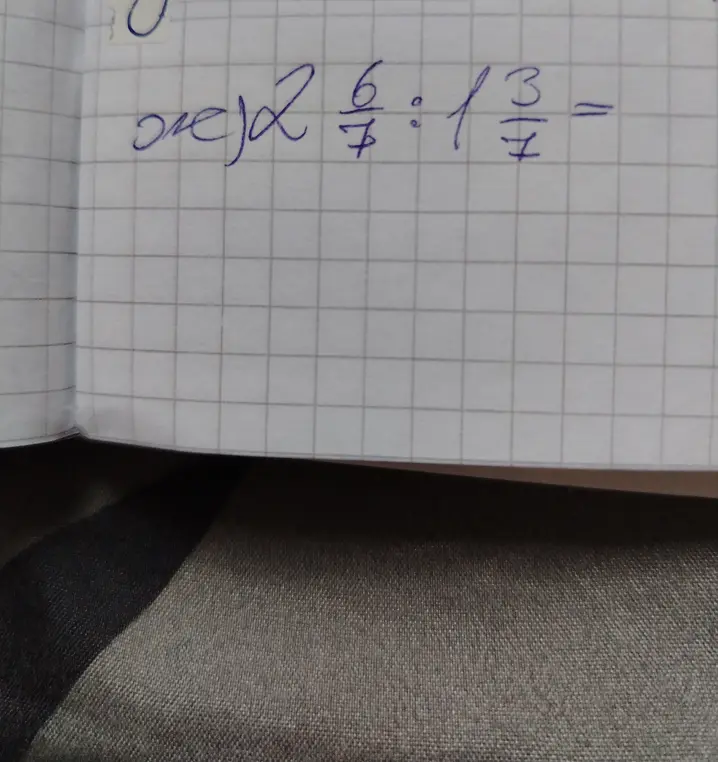 ж) 2 6/7 : 1 3/7 =